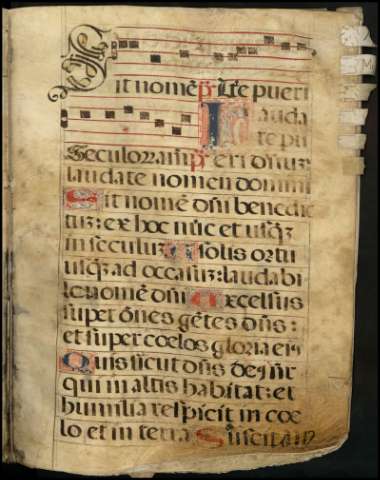 Sit nomē ps Lte pueri
Lauda
te pu
Seculorr amē ps eri dn̄uz:
laudate nomen domini
Sit nomē dn̄i benedic
tuz: ex hoc nūc et usq̄z
in seculuz A solis ortu
usq̄z ad occasuz: laudabi
le nomē dn̄i Excelsus
super ōnes gētes dn̄s:
et super coelos gloria eiꝰ
Quis sicut dn̄s deꝰ nr̄
qui in altis habitat: et
humilia respicit in coe
lo et in terra Suscitās